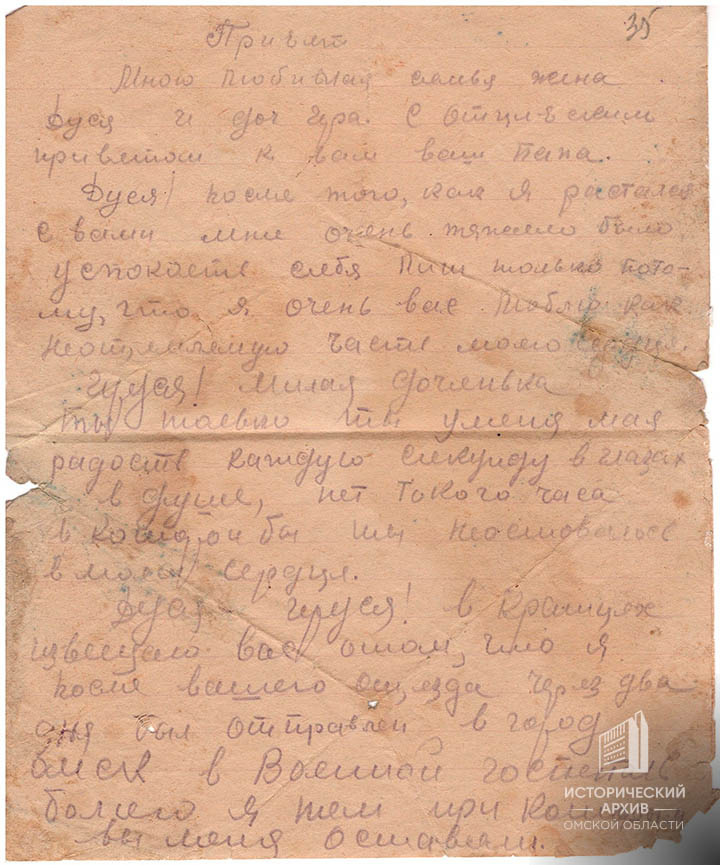 35
Привет
Мною любимая семья жена
Дуся и доч Ира. С отцивским
приветом к вам ваш папа.
Дуся! после того, как я растался
с вами мне очень тяжело было
успокоеть себя лиш только пото-
му, что я очень вас люблю как
неотъемлемую часть моего сердця.
Ируся! милая доченька
ты только ты уменя мая
радость каждую секунду в глазах
в душе, нет такого часа
в которой бы ты неоставалась
в моем сердця.
Дуся Ируся! в кратцях
извещаю вас отом, что я
после вашего отъезда через два
дня был отправлен в город
омск в Военной госпеталь
болего я тем при
вы меня оставили.
ИСТОРИЧЕСКИЙ
АРХИВ
ОМСКОЙ ОБЛАСТИ